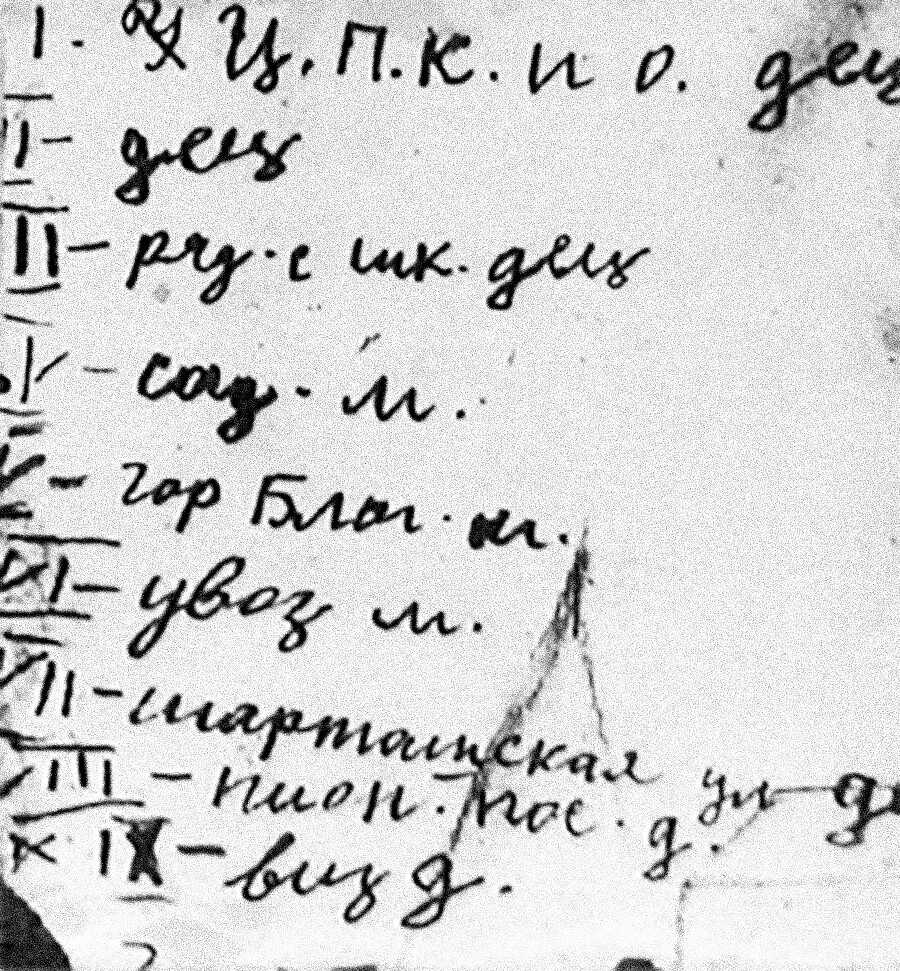 I. Ц.П.К. и о. дец
II - дец
III - ряд. с шк. дец
IV - сад. м.
V - гор Благ. м.
VI - увоз м.
VII - шарташская ул
VIII - пион. пос. д.
IX - виз д.